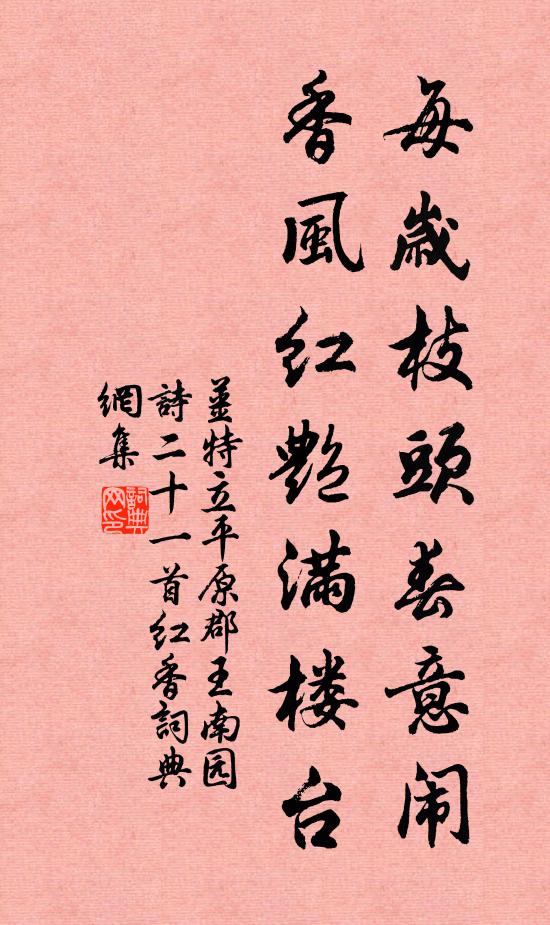 每歲枝頭春意闹
香風红艷滿楼台
姜特立平原郡王南园
詩二十一首红香詞典
網集
詞典网印